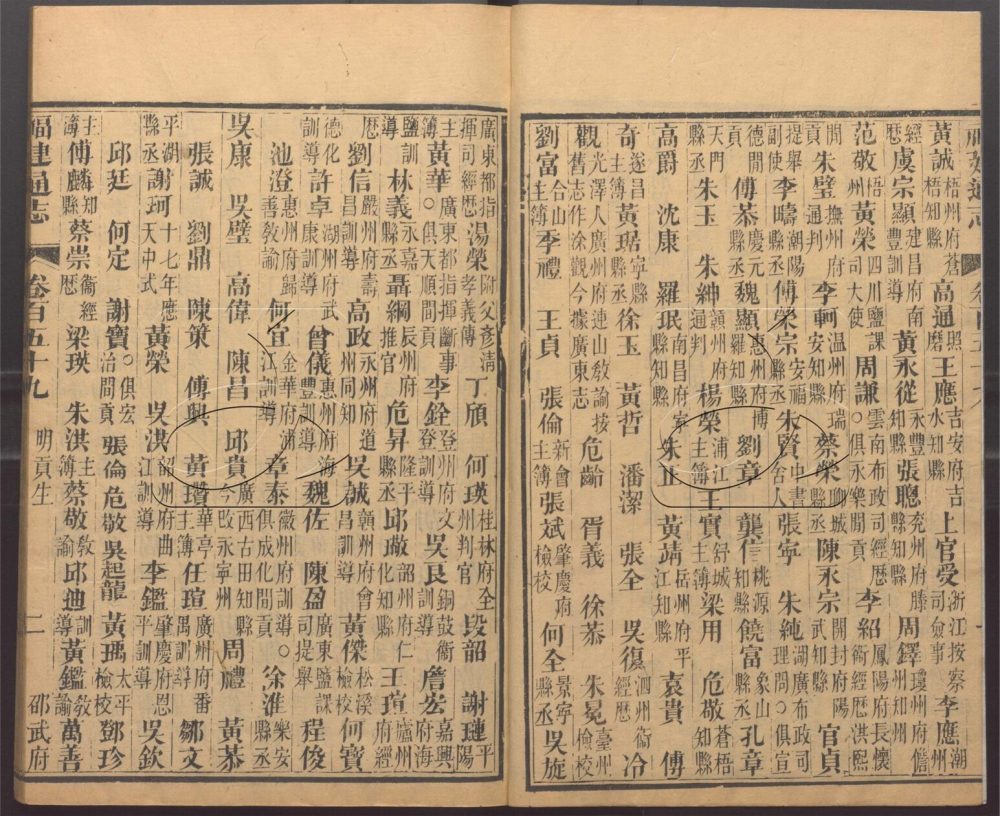 黃誠梧州府蒼梧知縣 高通照磨 王應吉安府吉水知縣 上官受浙江按察司僉事 李應潮州
經歷 虞宗顯建昌府南豐訓導 黃永從永豐知縣 張聰兖州府滕縣知縣 周鐸瓊州府儋州知州
范敬 黃榮四川鹽課司大使 周謙雲南布政司經歷○俱永樂間貢 李紹鳳陽府長懷衛經歷洪熙
間貢 朱璧撫州府通判 李軻溫州府瑞安知縣 蔡榮聊城縣丞 陳永宗開封府陽武知縣 官貞
提舉副使 李疇潮陽縣丞 傅榮宗安福縣丞 朱賢中書舍人 張寧 朱純湖廣布政司理問○俱宣
德間貢 傅恭慶元縣丞 魏顯惠州府博羅知縣 劉章 龔信桃源知縣 饒富象山知縣 孔章
天門縣丞 朱玉 朱紳贛州府通判 楊榮浦江主簿 王實舒城主簿 梁用 危敬蒼梧知縣
高爵 沈康 羅珉南昌府寧縣知縣 朱正 黃靖岳州府平江知縣 袁貴 傅
奇遂昌主簿 黃琚寧縣縣丞 徐玉 黃哲 潘潔 張全 吳復泗州衛經歷 冷
觀光澤人廣州府連山敎諭按舊志作涂觀今據廣東志 危齡 胥義 徐恭 朱冕臺州檢校
劉富合山主簿 季禮 王貞 張倫新會主簿 張斌肇慶府檢校 何全景寧縣丞 吳旋
廣東都指揮司經歷 湯榮附父彥清孝義傳 丁頎 何瑛桂林府全州判官 段韶 謝璉平陽
主簿 黃華廣東都指揮斷事○俱天順間貢 李銓登州府文登訓導 吳艮銅鼓衛訓導 詹宏嘉興府海
鹽訓導 林義永嘉縣丞 聶綱長州府推官 危昇隆平縣丞 邱璥韶州府仁化知縣 王瑄廬州經
歷 劉信嚴州府壽昌訓導 高政永州府道州同知 吳誠贛州府會昌訓導 黃傑松溪檢校 何寶
德化訓導 許卓湖州府武康訓導 曾儀惠州府海豐訓導 魏佐 陳盈廣東鹽課司提舉 程俊
池澄惠州府歸善敎諭 何宜金華府浦江訓導 章泰徽州府訓導○俱成化間貢 徐淮樂安縣丞 黃恭
吳康 吳璧 高偉 陳昌 邱貴廣西古田知縣今改永寧州 周禮
張誠 劉鼎 陳策 傅興 黃瓚華亭主簿 任瑄廣州府番禺訓導 鄒文
平湖縣丞 謝珂十七年應天中式 黃榮 吳洪韶州府曲江訓導 李鑑肇慶府恩平訓導 吳欽
邱廷 何定 謝寶○俱宏治間貢 張倫 危敬 吳起龍 黃瑀太平檢校 鄧珍
主簿 傅麟知縣 蔡崇衛經歷 梁瑛 朱洪主簿 蔡敬敎諭 邱迪訓導 黃鑑敎諭 萬善
福建通志 卷百五十九 明貢生 二 邵武府